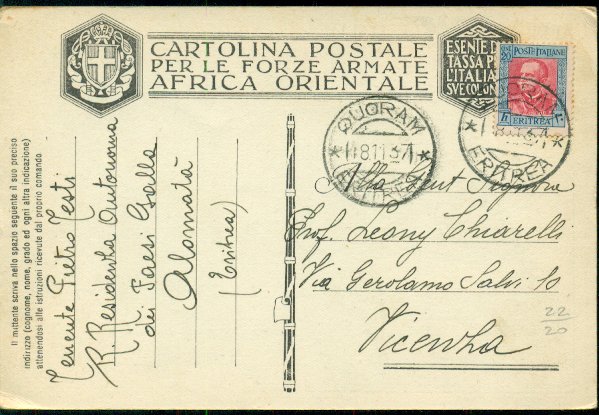 CARTOLINA POSTALE
PER LE FORZE ARMATE
AFRICA ORIENTALE
ESENTE DA
TASSA PER
L'ITALIA
SUE COLON
POSTE ITALIANE
ERITREA
QUORAM
18 11 37
ERITREA
ERITREA
Il mittente scriva nello spazio seguente il suo preciso
indirizzo (cognome, nome, grado ed ogni altra indicazione)
attenendosi alle istruzioni ricevute dal proprio comando
Tenente Pietro Testi
R. Residenza Autonoma
dei Paesi Galla
Alomatà
(Eritrea)
Alla Gent Signora
Prof. Leony Chiarelli
Via Gerolamo Salvi 10
Vicenza
22
20